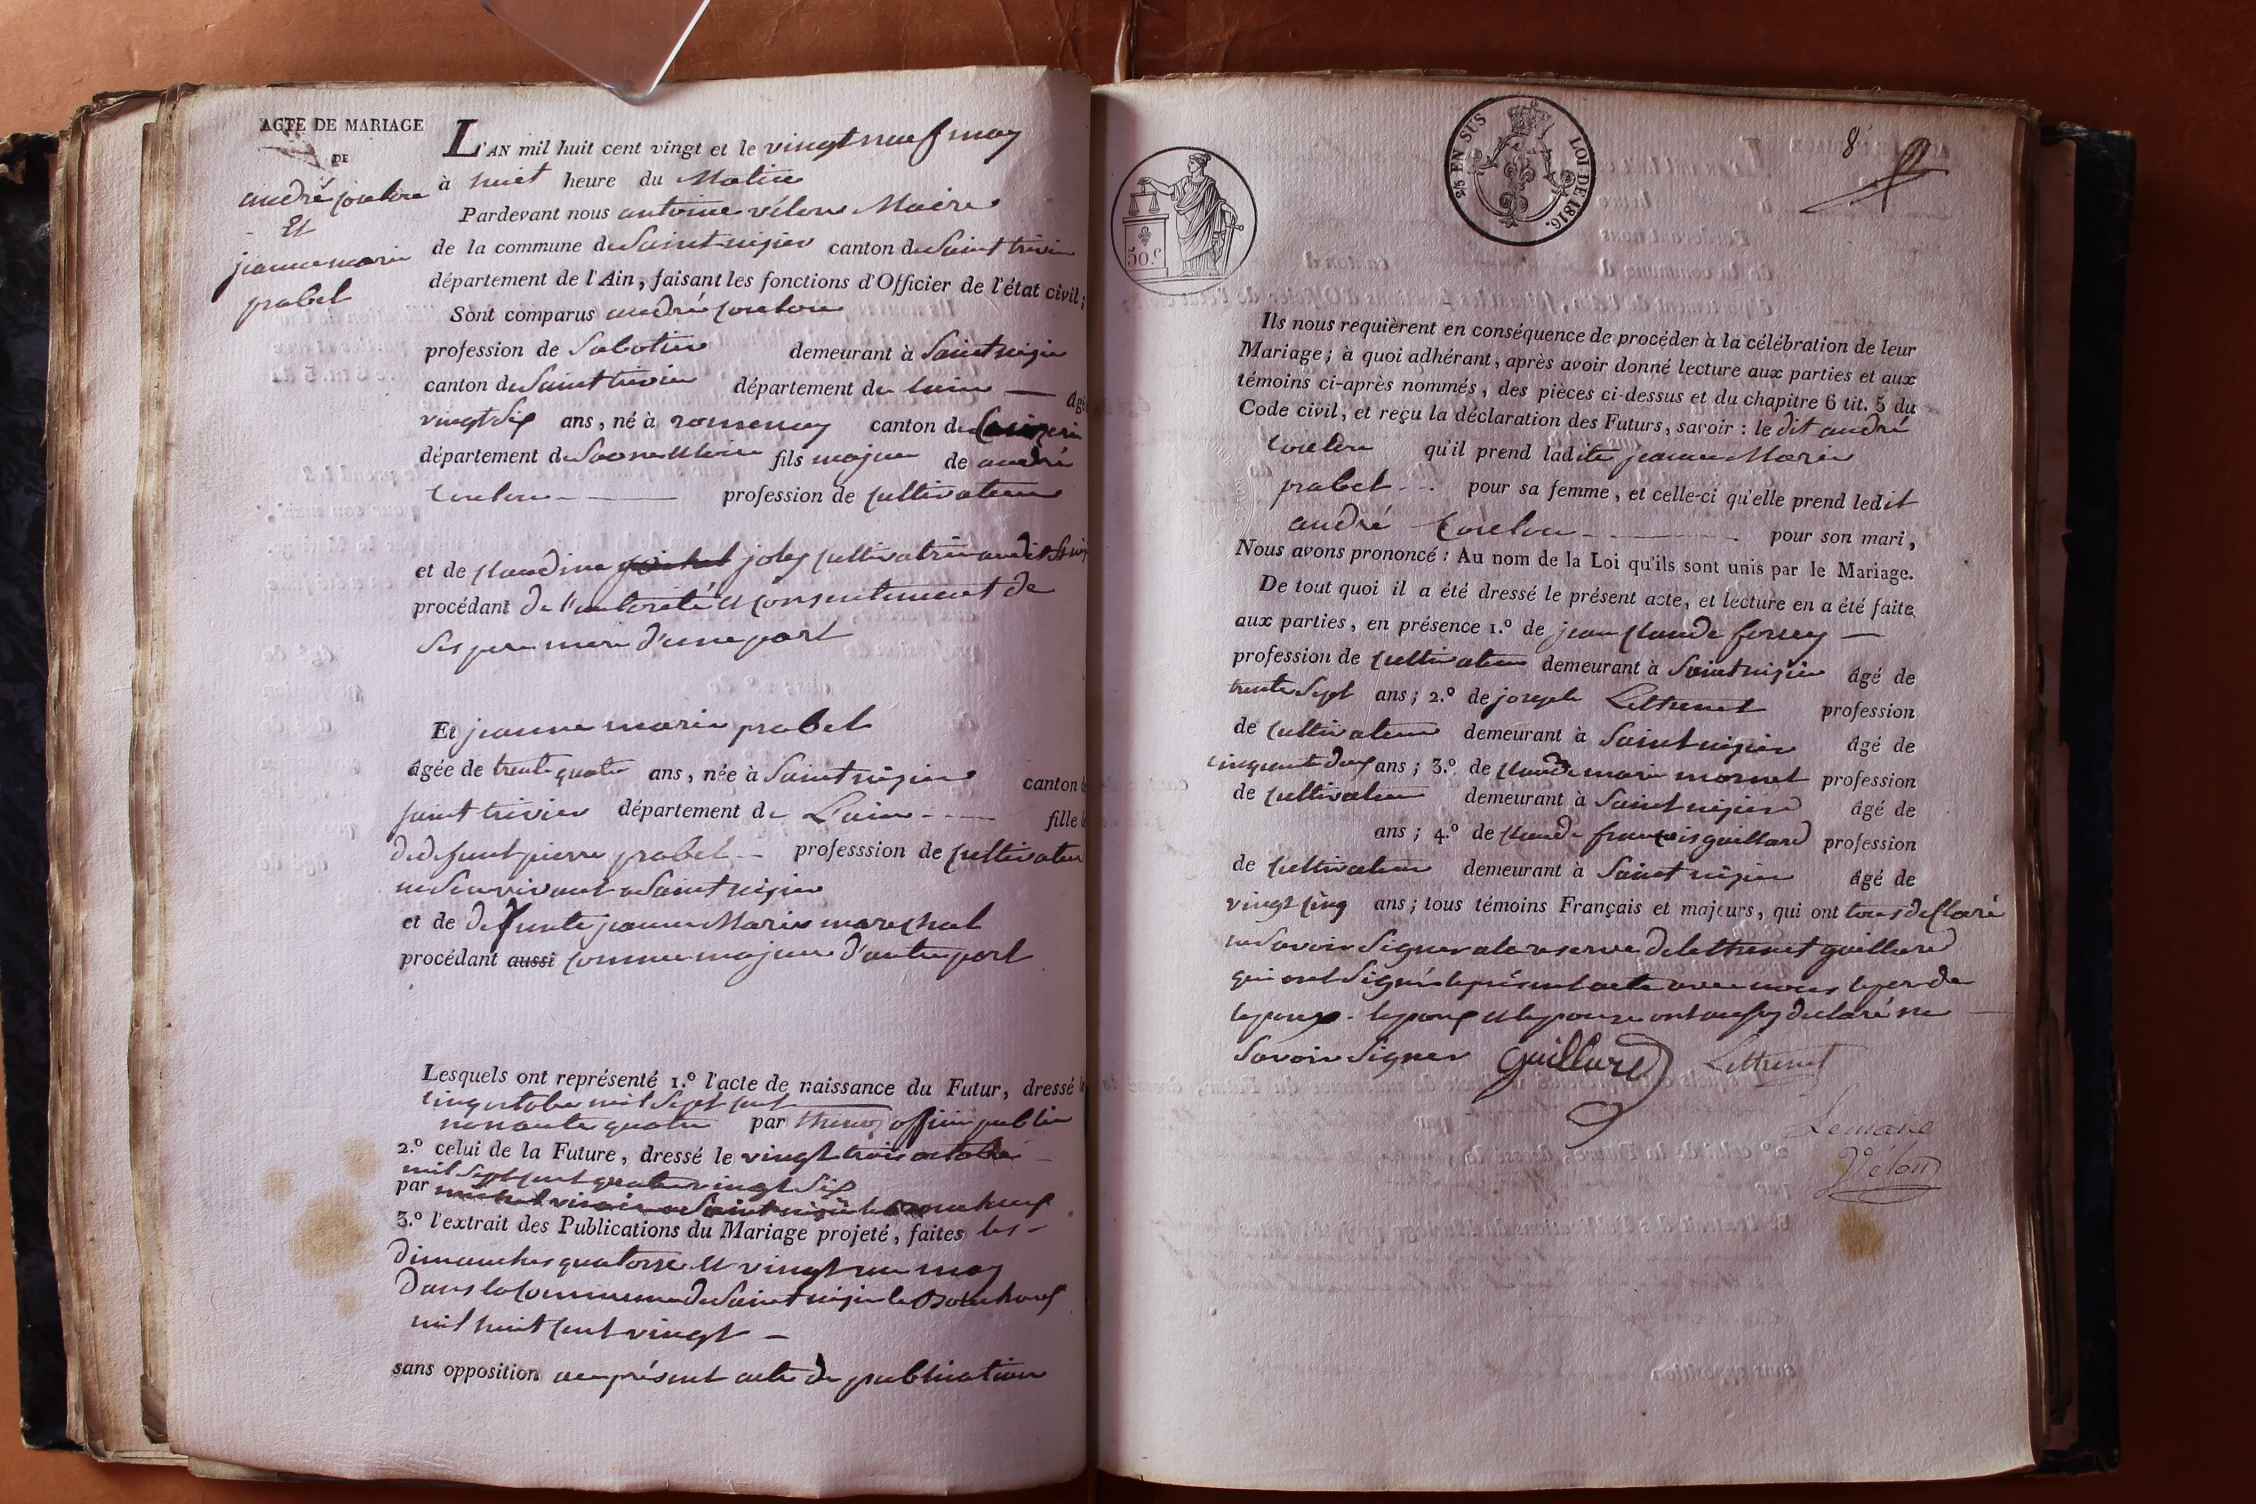 ACTE DE MARIAGE
DE
andré coulon
Et
jeanne marie
prabel
L'AN mil huit cent vingt et le vingt neuf may
à huit heure du Matin
Pardevant nous antoine vélon Maire
de la commune de Saint nizier canton de Saint trivier
département de l'Ain, faisant les fonctions d'Officier de l'état civil;
Sont comparus andré coulon
profession de Sabotier demeurant à Saint nizier
canton de Saint trivier département de lain âgé
vingt Six ans, né à romenay canton de
département de Saone et loire fils majeur de andré
Coulon profession de cultivateur
et de claudine joly cultivatrice audit
procédant de l'autorité et consentement de
Ses pere mere d'une part
Et jeanne marie prabel
âgée de trente quatre ans, née à Saint nizier canton
saint trivier département de L'ain fille
de defunt pierre prabel professsion de cultivateur
de Son vivant a Saint nizier
et de defunte jeanne Marie marechal
procédant aussi comme majeure d'autre part
Lesquels ont représenté 1.º l'acte de naissance du Futur, dressé le
cinq octobre mil Sept cent
nonante quatre par officier public
2.º celui de la Future, dressé le vingt trois octobre
mil Sept cent quatre vingt Six
par
3.º l'extrait des Publications du Mariage projeté, faites les
dimanches quatorze et vingt un may
Dans la Commune de Saint nizier le Bouchoux
mil huit cent vingt
sans opposition au présent acte de publication
25 EN SUS
LOI DE 1816.
50.c
8
Ils nous requièrent en conséquence de procéder à la célébration de leur
Mariage; à quoi adhérant, après avoir donné lecture aux parties et aux
témoins ci-après nommés, des pièces ci-dessus et du chapitre 6 tit. 5 du
Code civil, et reçu la déclaration des Futurs, savoir: le dit andré
Coulon qu'il prend ladite jeanne Marie
prabel pour sa femme, et celle-ci qu'elle prend ledit
andré Coulon pour son mari,
Nous avons prononcé: Au nom de la Loi qu'ils sont unis par le Mariage.
De tout quoi il a été dressé le présent acte, et lecture en a été faite
aux parties, en présence 1.º de jean claude
profession de cultivateur demeurant à Saint nizier âgé de
trente Sept ans; 2.º de joseph Lethenet profession
de cultivateur demeurant à Saint nizier âgé de
cinquante deux ans; 3.º de claude marie mornet profession
de cultivateur demeurant à Saint nizier âgé de
ans; 4.º de claude françois guillard profession
de cultivateur demeurant à Saint nizier âgé de
vingt cinq ans; tous témoins Français et majeurs, qui ont tous declaré
ne Savoir Signer a la reserve de lethenet guillard
qui ont Signé le présent acte avec nous le per de
lepoux. lepoux et lepouse ont aussy declaré ne
Savoir Signer Guillard Lethenet
Le maire
Vélon